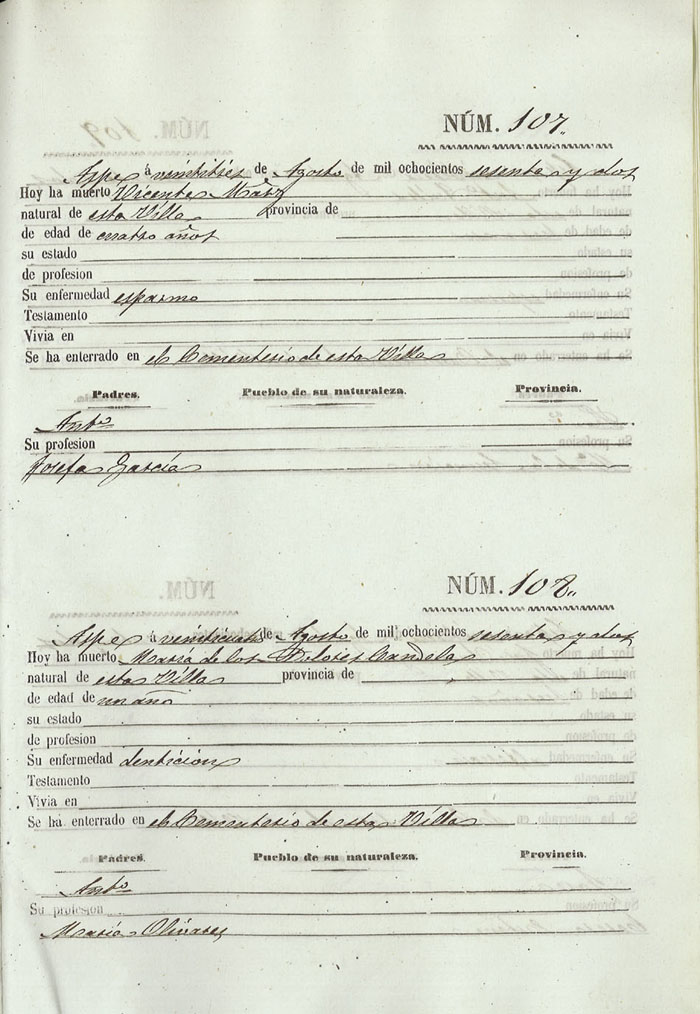 NÚM. 107.
Aspe á veintitrés de Agosto de mil ochocientos sesenta y dos
Hoy ha muerto Vicente
natural de esta Villa provincia de
de edad de cuatro años
su estado
de profesion
Su enfermedad espasmo
Testamento
Vivia en
Se ha enterrado en el Cementerio de esta Villa
Padres. Pueblo de su naturaleza. Provincia.
Antº
Su profesion
Josefa García
NÚM. 108.
Aspe á veinticuatro de Agosto de mil ochocientos sesenta y dos
Hoy ha muerto María de los Dolores Candela
natural de esta Villa provincia de
de edad de un año
su estado
de profesion
Su enfermedad denticion
Testamento
Vivia en
Se ha enterrado en el Cementerio de esta Villa
Padres. Pueblo de su naturaleza. Provincia.
Antº
Su profesion
María Olivares